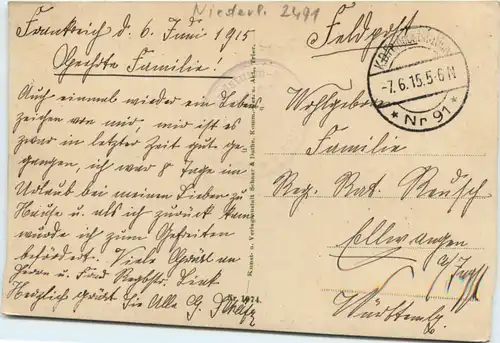 Niederl. 2491
Frankreich d. 6. Juni 1915
Geehrte Familie!
Auch einmal wieder ein Lebens-
zeichen von mir, mir ist es
zwar in letzter Zeit gut ge-
gangen, ich war 8 Tage im
Urlaub bei meinen Lieben zu
Hause u. als ich zurück kam
wurde ich zum Gefreiten
befördert. Viele Grüße an
Herrn u. Frau
Herzlich grüßt Sie Alle G.
Kunst- u. Verlagsanstalt Schaar & Dathe, Komm.-Ges. a. Akt., Trier.
Nr. 1974.
Feldpost
-7.6.15.5-6N
* Nr 91 *
Wohlgeboren
Familie
Reg. Rat. Reusch
Ellwangen
a/Jagst
Württembg.